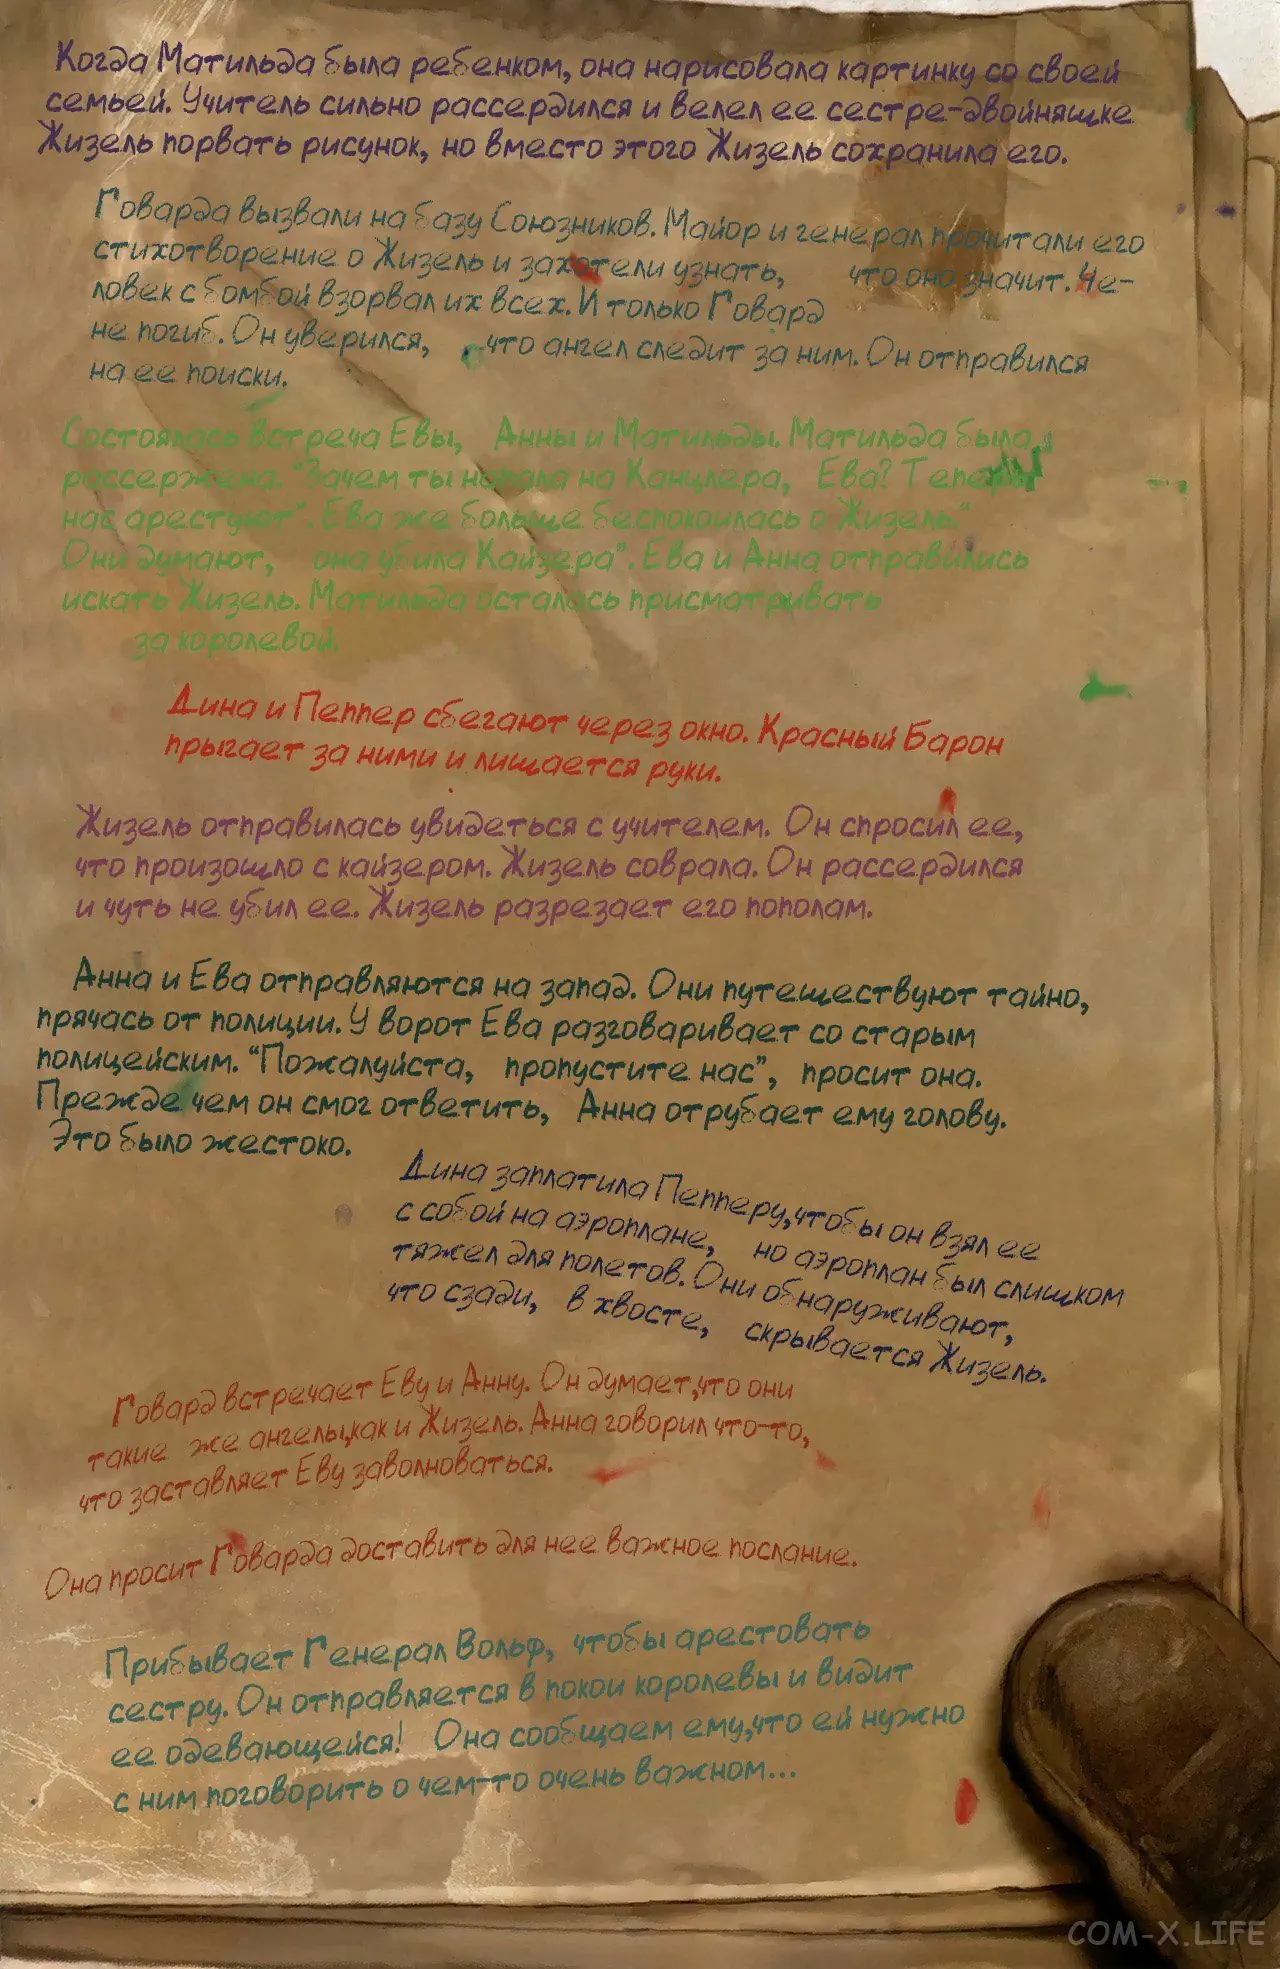 Когда Матильда была ребенком, она нарисовала картинку со своей
семьей. Учитель сильно рассердился и велел ее сестре-двойняшке
Жизель порвать рисунок, но вместо этого Жизель сохранила его.
Говарда вызвали на базу Союзников. Майор и генерал прочитали его
стихотворение о Жизель и захотели узнать, что оно значит. Че-
ловек с бомбой взорвал их всех. И только Говард
не погиб. Он уверился, что ангел следит за ним. Он отправился
на ее поиски.
Состоялась встреча Евы, Анны и Матильды. Матильда была
рассержена. "Зачем ты напала на Канцлера, Ева? Теперь
нас арестуют". Ева же больше беспокоилась о Жизель."
Они думают, она убила Кайзера". Ева и Анна отправились
искать Жизель. Матильда осталась присматривать
за королевой.
Дина и Пеппер сбегают через окно. Красный Барон
прыгает за ними и лишается руки.
Жизель отправилась увидеться с учителем. Он спросил ее,
что произошло с кайзером. Жизель соврала. Он рассердился
и чуть не убил ее. Жизель разрезает его пополам.
Анна и Ева отправляются на запад. Они путешествуют тайно,
прячась от полиции. У ворот Ева разговаривает со старым
полицейским. "Пожалуйста, пропустите нас", просит она.
Прежде чем он смог ответить, Анна отрубает ему голову.
Это было жестоко.
Дина заплатила Пепперу,чтобы он взял ее
с собой на аэроплане, но аэроплан был слишком
тяжел для полетов. Они обнаруживают,
что сзади, в хвосте, скрывается Жизель.
Говард встречает Еву и Анну. Он думает,что они
такие же ангелы,как и Жизель. Анна говорил что-то,
что заставляет Еву заволноваться.
Она просит Говарда доставить для нее важное послание.
Прибывает Генерал Вольф, чтобы арестовать
сестру. Он отправляется в покои королевы и видит
ее одевающейся! Она сообщаем ему,что ей нужно
с ним поговорить о чем-то очень важном...
COM-X.LIFE